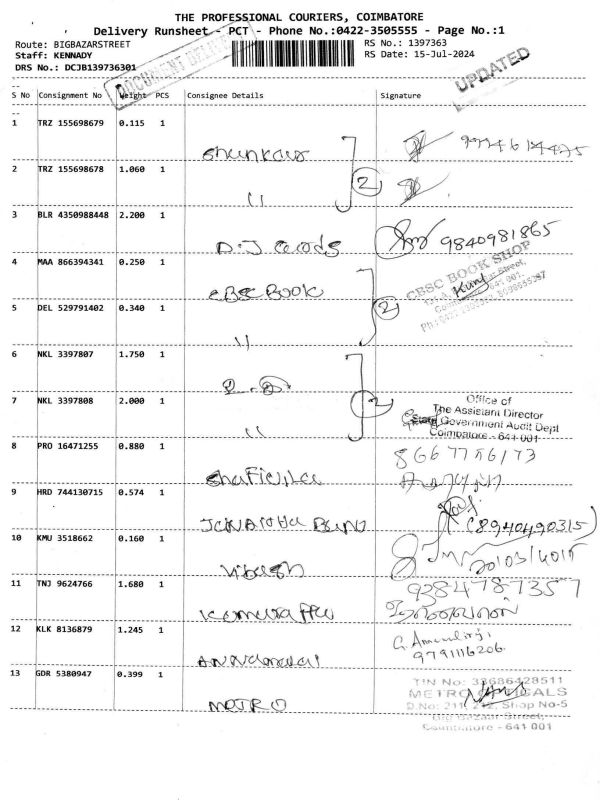 THE PROFESSIONAL COURIERS, COIMBATORE
Delivery Runsheet - PCT - Phone No.:0422-3505555 - Page No.:1
Route: BIGBAZARSTREET RS No.: 1397363
Staff: KENNADY RS Date: 15-Jul-2024
DRS No.: DCJB139736301
DOCUMENT DELIVERY
UPDATED
S No Consignment No Weight PCS Consignee Details Signature
1 TRZ 155698679 0.115 1
Shunkar
2 TRZ 155698678 1.060 1 2
11
3 BLR 4350988448 2.200 1
D.J 9840981865
4 MAA 866394341 0.250 1
CBSC BOOK CBSC BOOK SHOP
5 DEL 529791402 0.340 1 2
11
6 NKL 3397807 1.750 1
7 NKL 3397808 2.000 1 2
11
Office of
The Assistant Director
State Government Audit Dept
Coimbatore - 641 001
8 PRO 16471255 0.880 1
8667756173
9 HRD 744130715 0.574 1
BANU (8940490315)
10 KMU 3518662 0.160 1
11 TNJ 9624766 1.680 1 9384787357
12 KLK 8136879 1.245 1
Annamalai 9791116206
13 GDR 5380947 0.399 1
METRO
TIN No: 33686428511
METRO CHEMICALS
D.No: 211, 212, Shop No-5
Big Bazaar Street,
Coimbatore - 641 001